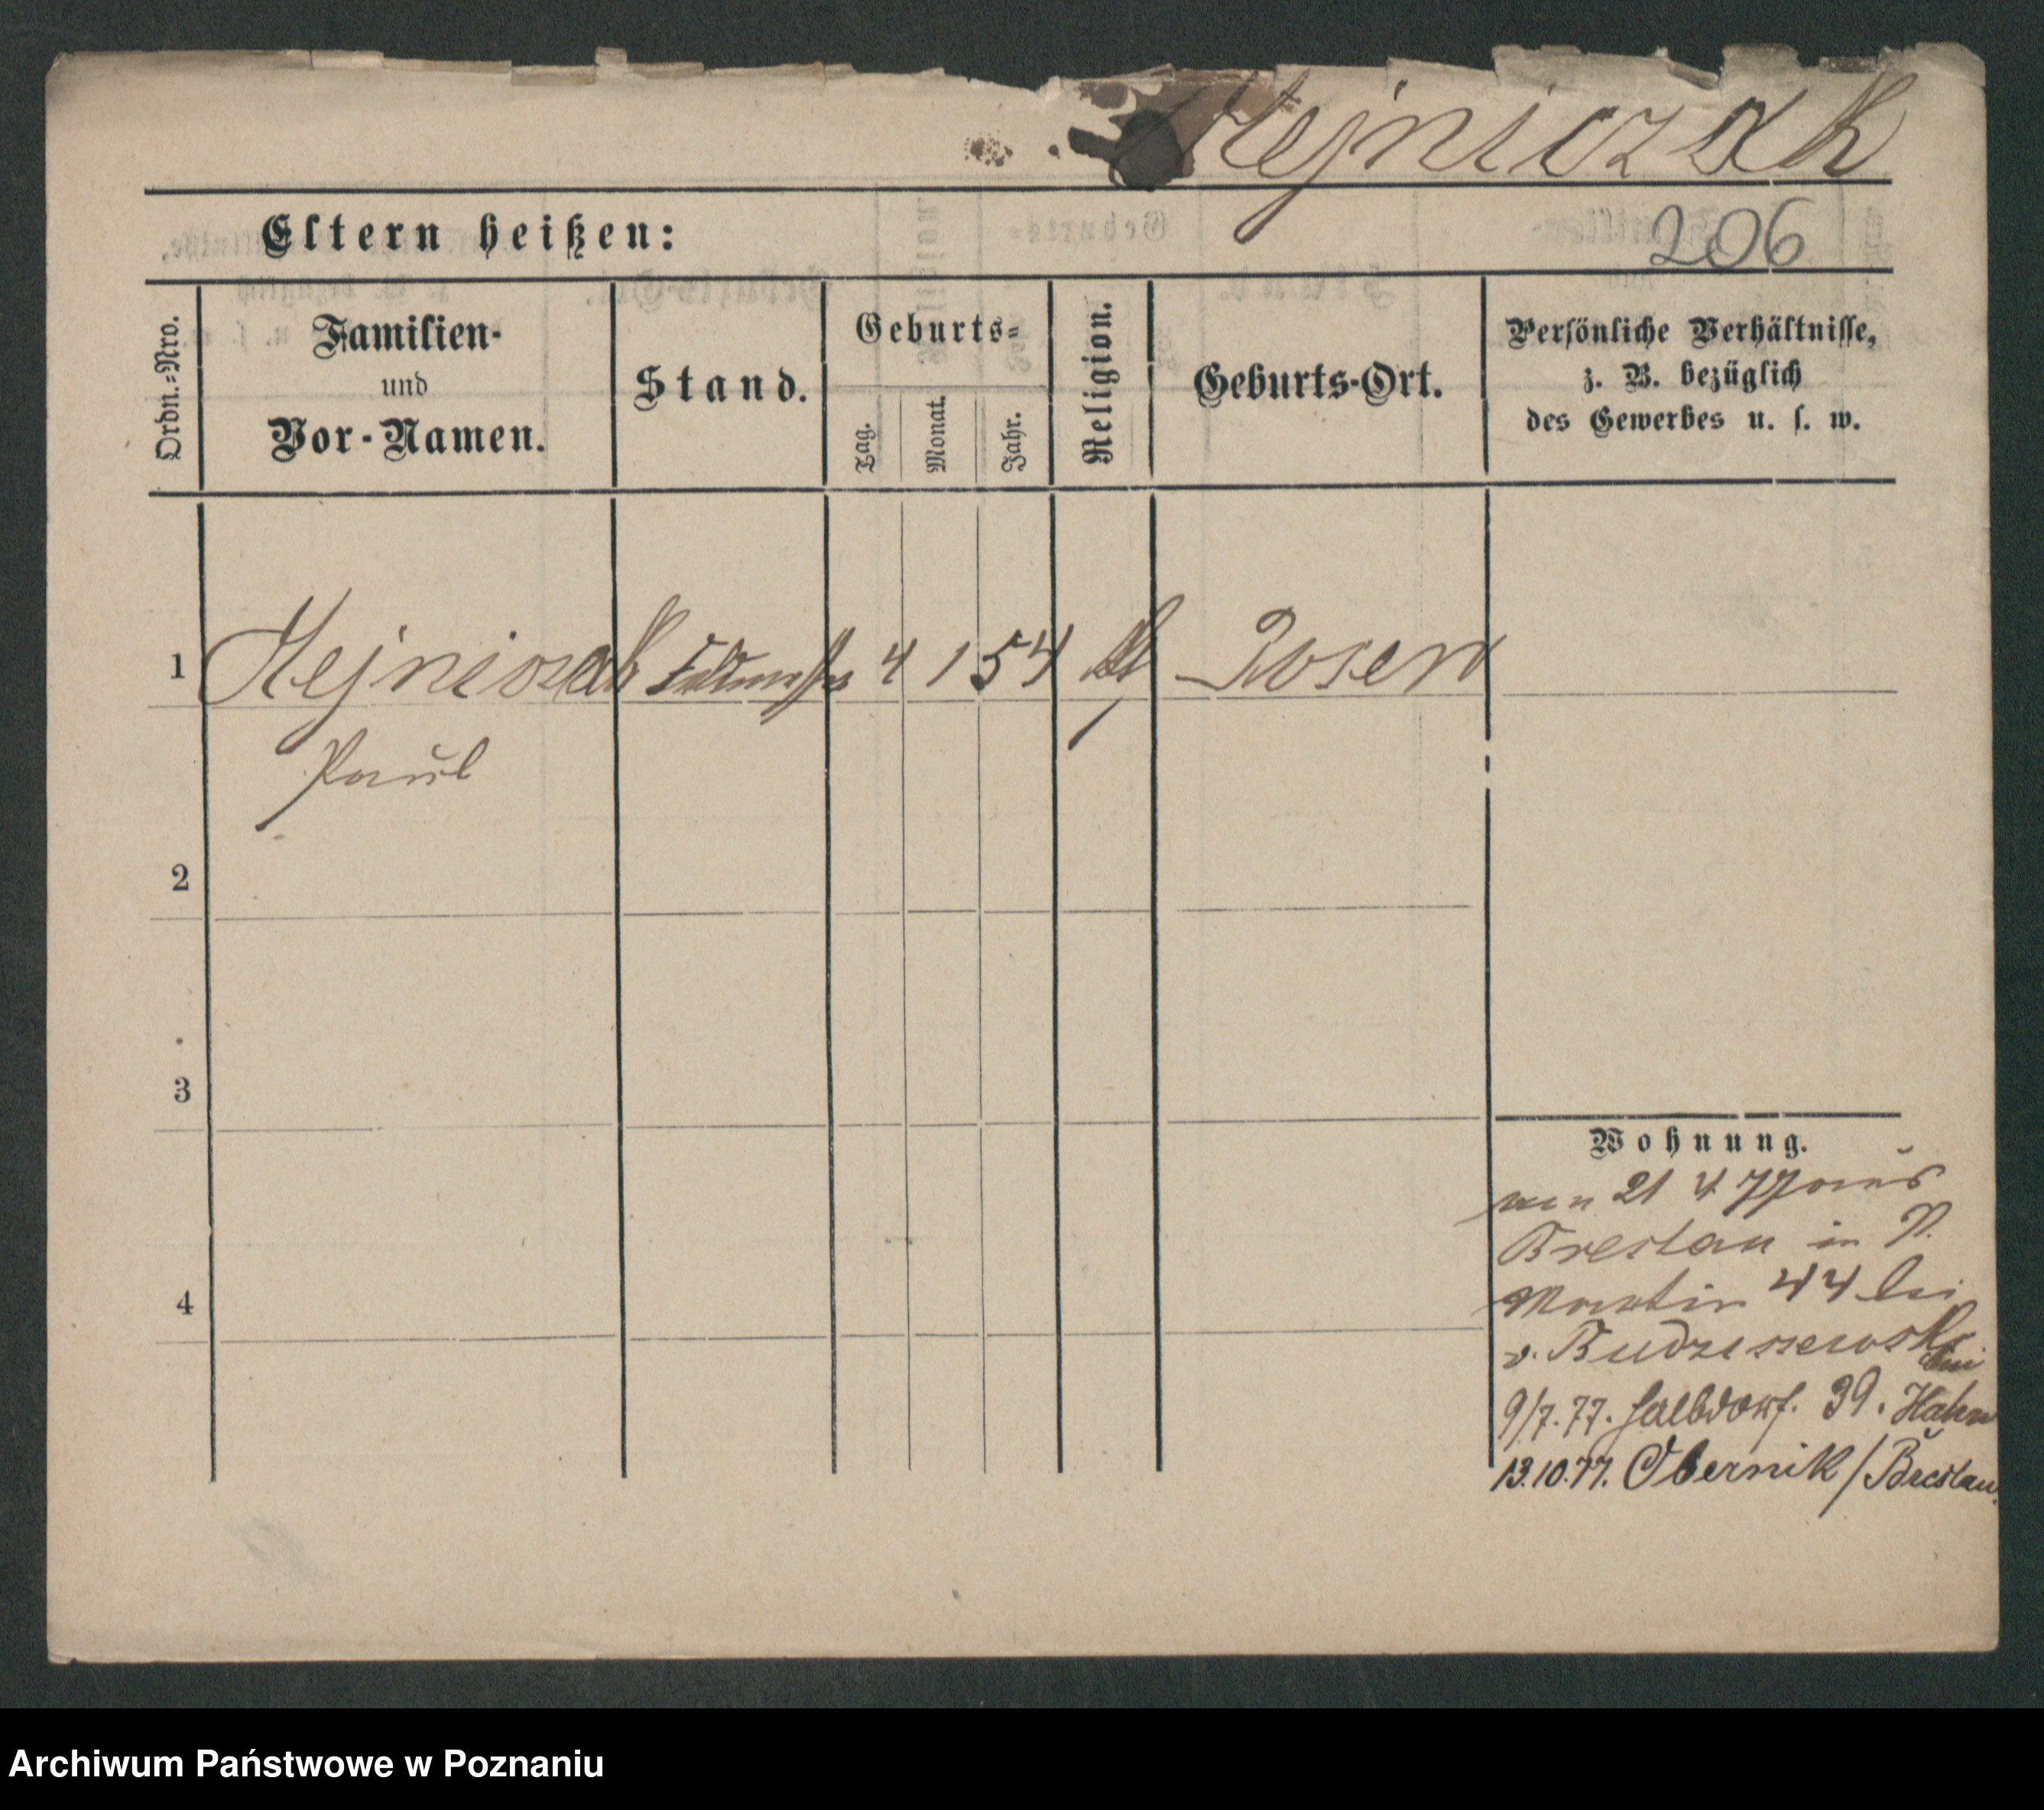 Hejniczak
Eltern heißen:
206
Ordn.=Nro.
Familien-
und
Vor-Namen.
Stand.
Geburts=
Tag.
Monat.
Jahr.
Religion.
Geburts-Ort.
Persönliche Verhältnisse,
z. B. bezüglich
des Gewerbes u. s. w.
1 Hejniczak 4 1 54 Posen
Paul
2
3
4
Wohnung.
21 4 77 aus
Breslau in
Martin 44 bei
v. Budziszewski
bei
9/7. 77. Halbdorf. 39. Hahn
13.10.77. Obernik / Breslau.
Archiwum Państwowe w Poznaniu